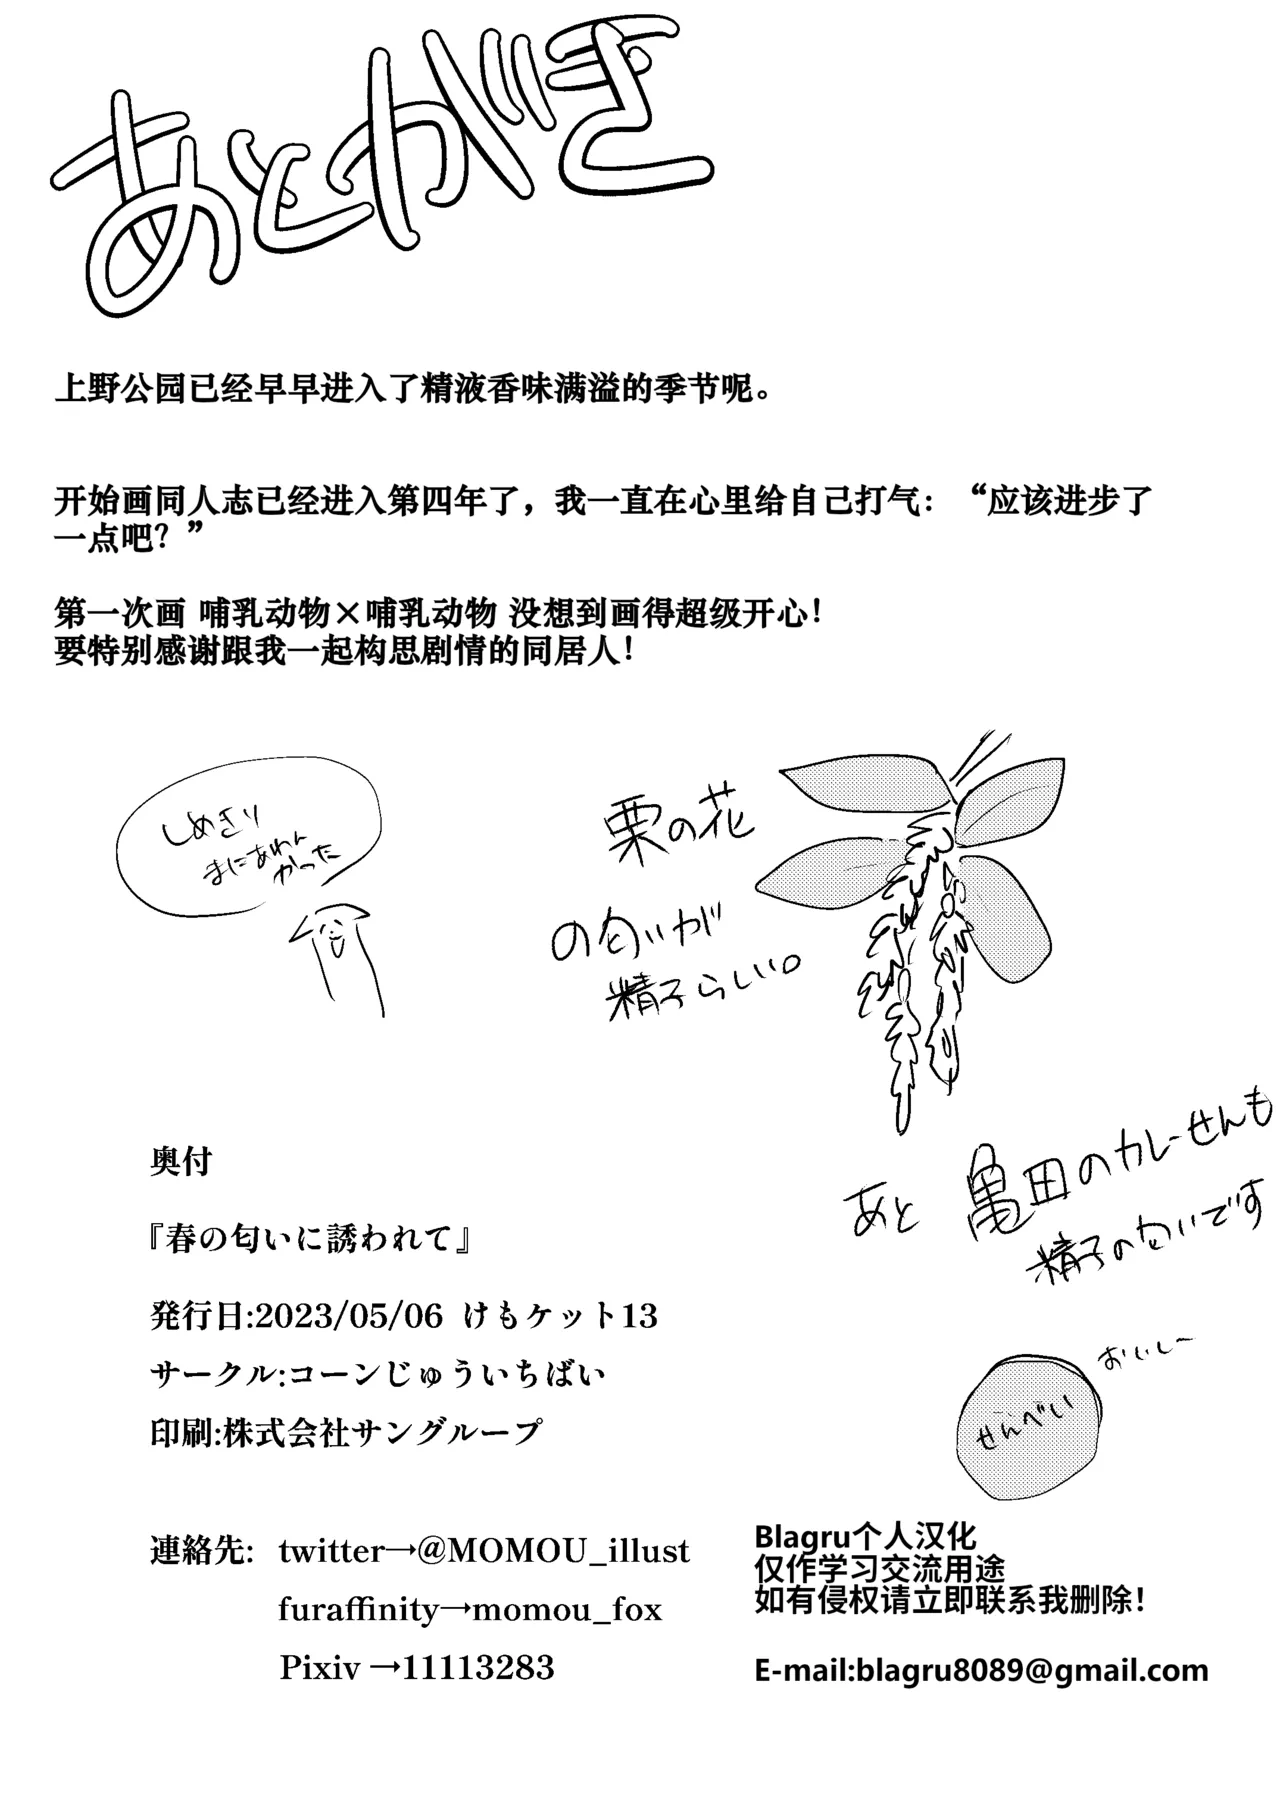 あとがき
上野公园已经早早进入了精液香味满溢的季节呢。
开始画同人志已经进入第四年了，我一直在心里给自己打气：“应该进步了
一点吧？”
第一次画 哺乳动物×哺乳动物 没想到画得超级开心！
要特别感谢跟我一起构思剧情的同居人！
しめきり
まにあわん
かった
栗の花
の匂いが
精子らしい。
あと 亀田のカレーせんも
精子の匂いです
おいしー
せんべい
奥付
『春の匂いに誘われて』
発行日:2023/05/06 けもケット13
サークル:コーンじゅういちばい
印刷:株式会社サングループ
連絡先: twitter→@MOMOU_illust
furaffinity→momou_fox
Pixiv →11113283
Blagru个人汉化
仅作学习交流用途
如有侵权请立即联系我删除！
E-mail:blagru8089@gmail.com